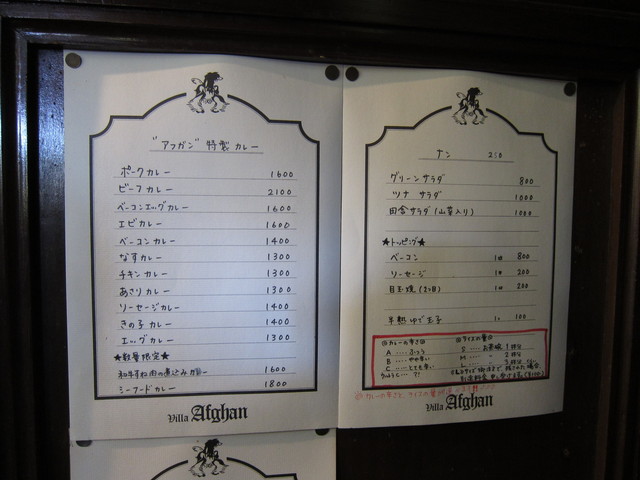 "アフガン" 特製 カレー
ポークカレー 1600
ビーフカレー 2100
ベーコンエッグカレー 1600
エビカレー 1600
ベーコンカレー 1400
なすカレー 1300
チキンカレー 1300
あさりカレー 1300
ソーセージカレー 1400
きの子カレー 1400
エッグカレー 1300
★数量限定★
和牛すね肉の煮込みカレー 1600
シーフードカレー 1800
Villa Afghan
ナン 250
グリーンサラダ 800
ツナ サラダ 1000
田舎サラダ(山菜入り) 1000
★トッピング★
ベーコン 1ヶ 800
ソーセージ 1ヶ 200
目玉焼(2ヶ目) 1ヶ 200
半熟ゆで玉子 1ヶ 100
◎カレーの辛さ◎
A ..... ふつう
B ..... やや辛い
C ..... とても辛い
◎ライスの量◎
S ..... お茶碗 1杯分
M ..... 〃 2杯分
L ..... 〃 3杯分
Villa Afghan